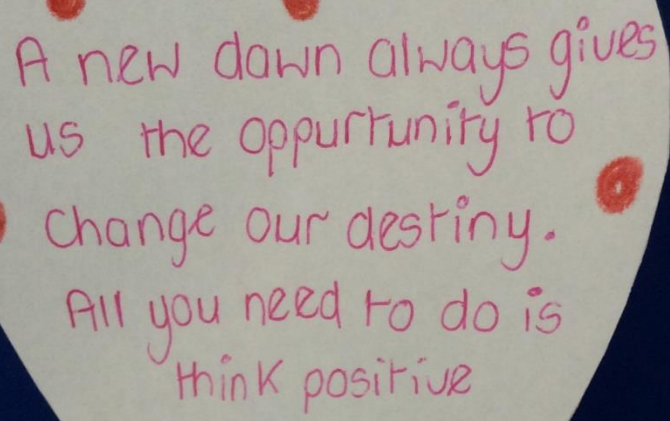 A new dawn always gives
us the oppurtunity to
change our destiny.
All you need to do is
think positive